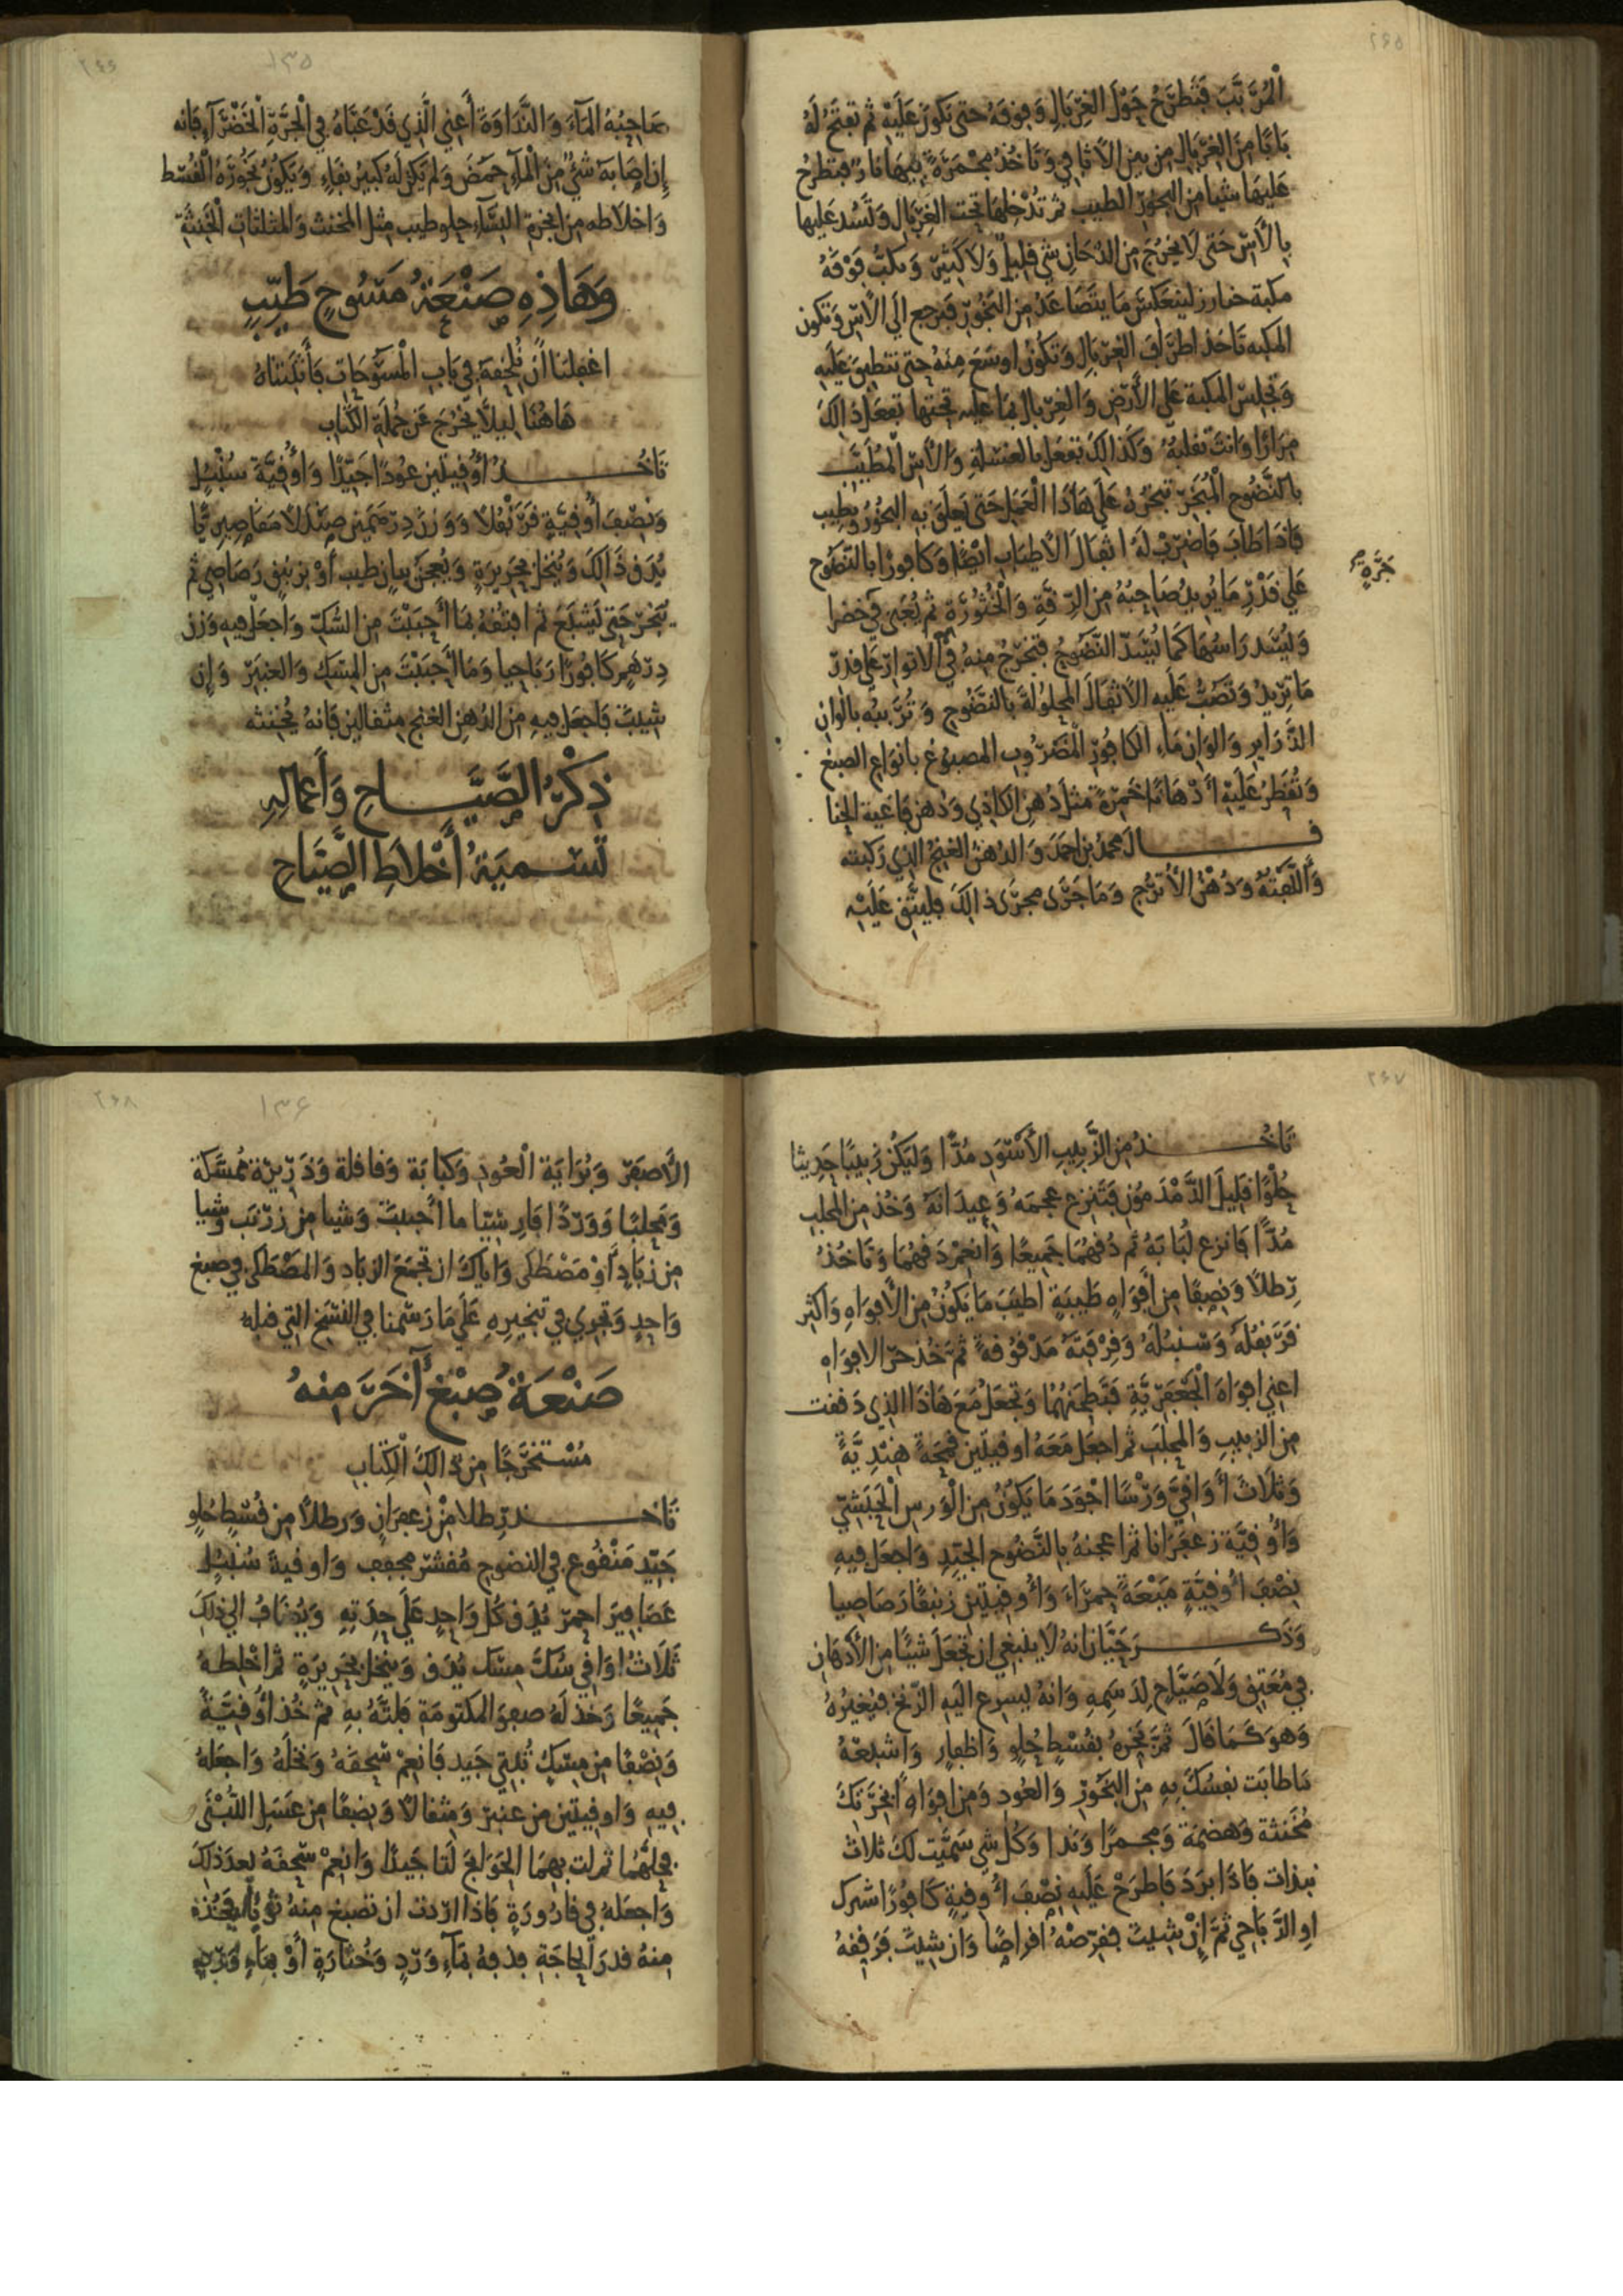 ٢٤٥
المُرَبَّبَ فَتَطْرَحُ حَوْلَ الغِرْبَالِ وَفوقَهُ حَتى تكونَ عَلَيْهِ ثم تفتَحُ لَهُ
بَابًا مِنَ الغِرْبَالِ مِن بينِ الأثافي وَتَأخُذُ مِجْمَرَةً فيهَا نارٌ فتطرحُ
عَليهَا شيئا مِن البخورِ الطيب ثم تُدْخِلهَا تحت الغِرْبَالِ وَتَسُد عَليها
بِالآسِ حَتى لَا يخرُجَ مِن الدخانِ شي قليلٌ وَلَا كَثيرٌ وَتكبُّ فَوْقَهُ
مكبة خيارز لينعَكِسَ مَا يتَصَاعَدُ مِن البَخُورِ فيَرجع الَى الآسِ وَتكون
المكبه تَاخذ اطرَافَ الغِرْبَالِ وَتكونُ اوسَعَ مِنهُ حَتى تنطبق عَليهِ
وَتجلِسَ المكبة عَلى الأَرْضِ وَالغِرْبال بمَا عليه تحتها تفعَل ذالكَ
مِرَارًا وَانتَ تقلبهُ وَكَذالكَ تفعَل بالغسلةِ وَالآسِ المُطَيَّب
بالنَّضُوحِ المُبَخَّرِ تبَخّرُهُ عَلَى هَاذَا الْعَمَلِ حَتى يَعلَقَ بهِ البَخُورُ وَيطيب
فَاذَا طَابَ فَاضرِبْ لَهُ اثقالَ الأطيَاب ايْضًا وَكافورًا بالنَّضُوح
عَلى قَدْرِ مَا يُريدُ صَاحِبُهُ مِن الرِّقَّةِ وَالْخُثُورَةِ ثم يُعَبى في خضرا
جَرّةٍ صح
وَليُشَد رَاسُهَا كَمَا يُشَدّ النَّضُوحُ فتخرج مِنهُ في الاتوارِ عَلى قدرِ
مَا تريدُ وَتَصُبُّ عَلَيهِ الأثقَالَ المحلولةَ بالنَّضُوحِ وَتُزَيّنهُ بالوانِ
الذَّرَايرِ وَالوَانِ مَاءِ الكافُورِ المضروبِ المصبُوغ بانواعِ الصبغ
وَتُقطِرُ عَلَيْهِ أَدْهَانًا خَمِرَةً مثلَ دُهنِ الكاذِي وَدُهن فَاغيةِ الحِنا
قَـــال محمدُ بن احمَدَ وَالدُهنُ الغنج الذي رَكبته
وَأَلَّفْتُهُ وَدُهنُ الأُترُجِ وَمَا جَرَى مجرَى ذالكَ فليَثق عَلَيْهِ
٢٤٦ ١٣٥
صَاحِبُهُ المَآءَ وَالنَّدَاوَةَ أَعني الَّذِي قَدْ عَبَّاهُ في الْجَرَّةِ الخَضْرَآءِ فَانه
إن اصَابَهُ شَيْءٌ مِنَ الْمَآءِ حَمُضَ وَلَم يَكن لَهُ كبيرُ بقَاءٍ وَيَكُونُ بَخُورُهُ الْقُسْط
وَاخلاطه مِن ابخرةِ النسَاءِ حلو طيب مثل المخنث وَالمثلثات المخنثة
وَهَاذِهِ صَنْعَةُ مَسُوحٍ طَيِّبٍ
اغفلنا أَن نُلحِقهُ في بَابِ الْمَسُوحَاتِ فَأَثْبَتْنَاهُ
هَاهُنَا ليلاً يخرُجَ عَن جُملَةِ الكتَابِ
تَاخُـــذُ أُوقيتين عُودًا جَيّدًا وَأُوقيَّة سُنْبُلٍ
وَنِصْفَ أُوقيّةٍ قَرَنْفُلًا وَوَزْنَ دِرْهَمَينِ صَنْدَلًا مَقَاصِيرِيًّا
يُدَق ذَالكَ وَيُنخل بحَرِيرَةٍ وَيُعجَنُ ببانٍ طيب أَوْ بزنبقٍ رَصَاصيٍ ثم
يُبَخَّر حَتى يَشبَعَ ثم افتُقهُ بمَا أَحبَبْتَ مِن السُّكِّ وَاجعَل فيهِ وَزنَ
دِرْهَمٍ كَافُورًا رَبَاحيا وَمَا أَحبَبْتَ مِن المِسكِ وَالعَنبَرِ وَإن
شيتَ فَاجعَل فيهِ مِن الدُهنِ الغنجِ مِثقالين فَانهُ يُخَنثه
ذِكْرُ الصَّيَّـــاحِ وَأَعمَالِهِ
تَسْمِيَةُ أَخْلاَطِ الصَّيَّاحِ
٢٤٧
تَاخُـــذُ مِن الزَّبيبِ الأَسْوَدِ مُدًّا وَليَكُن زَبيبًا حَدِيثا
حُلْوًا قَليلَ فَتَنزع عجمَهُ وَعِيدَانَهُ وَخُذ مِن المحلب
مُدًّا فَانزع لُبَابَهُ ثم دُقهُمَا جَميعًا وَأنعِمْ دَقهُمَا وَتَاخُذُ
رِطلًا وَنِصفًا مِن أَفوَاهٍ طَيبَةٍ اطيَبَ مَا يَكُونُ مِن الأَفوَاهِ وَاكثِر
قَرَنفُلَهُ وَسُنبُلَهُ وَقِرْفَتَهُ مَدْقُوقَةً ثم خُذ الافوَاهِ
اعني افوَاهَ الْجَعْفَرِيَّةِ فَتَطحَنهُمَا وَتجعَلُ مَعَ هَاذَا الذي دَققت
مِن الزبيبِ وَالمحلب ثم اجعَل مَعَهُ اوقيتينِ هِنْدِيَّةً
وَثَلَاثَ أَوَاقيَّ وَرْسًا اجْوَدَ مَا يَكُونُ مِن الْوَرسِ الْحَبَشي
وَأُوقيَّة زعفَرَانا ثم اعجنهُ بالنَّضُوحِ الجَيّدِ وَاجعَل فيهِ
نِصْفَ أُوقيَّةٍ مَيْعَةً حمرَاءَ وَأُوقيتين زَنبقًا رَصَاصيا
وَذَكَـــرَ حَيَّان انهُ لَا يَنبَغي ان تجعَلَ شيئًا مِن الأَدهَان
في مُعَتقٍ وَلَا صَيَّاحٍ لِدَسَمِهِ وَانهُ ليسرع اليهِ الزنخ فيغَيرُهُ
وَهوَ كَمَا قَالَ ثُم تبَخّرهُ بقُسْطٍ حُلوٍ وَاظفارٍ وَاشبعهُ
مَا طابَت نفسُكَ بهِ مِن البَخُورِ وَالعُودِ وَمِن افوَاهِ ابخرَتكَ
مُخَنثة وَهضمَة وَمجمرًا وَنَدا وَكُل شي سَمَّيت لكَ ثلاث
نبذات فَاذَا بَرَدَ فَاطرَحْ عَلَيهِ نِصْفَ أُوقيةٍ كَافُورًا شرك
اوِ الرَّبَاحي ثمَّ إِنْ شيتَ فقرصْهُ اقراصًا وَان شيتَ فَرَقِقهُ
٢٤٨ ١٣٦
الأَصفَر وَبُرَايَة الْعُودِ وَكبابَة وَقاقلة وَذَرِيرَة مُمَسَّكة
وَمحلبًا وَوَرْدًا فارِسيّا ما أَحببتَ وَشيا مِن زَرْنَب وشيا
مِن زَبَادٍ أَوْ مَصْطكَى وَايَّاكَ ان تجمَعَ الزباد وَالمَصْطكى في صبغ
وَاحِدٍ وَتجري في تبخيرِهِ عَلَى مَا رَسَمنا في النسَخِ التي قبلهُ
صَنْعَةُ صِبْغٍ آخَرَ مِنهُ
مُسْتَخْرَجًا مِن ذَالِكَ الْكِتَاب
تَاخـــذ رِطلا مِنْ زعفرَانٍ وَرطلًا مِن قُسْطٍ حُلوٍ
جَيّدٍ مَنْقُوعٍ في النضوحِ مُقشّر مجفف وَاوقيةً سُنْبُلٍ
عَصَافيرَ احمر يُدَق كُل وَاحِدٍ عَلَى حِدَتِهِ وَيُضَافُ الى ذلكَ
ثَلَاثُ اوَاقي سُكَّ مِسْك يُدَق وَيُنخل بحَرِيرَةٍ ثم اخلِطهُ
جَميعًا وَخُذ لَهُ صفوَ المكتومَةِ فلتَّهُ بهِ ثم خُذ أُوقيَّةً
وَنِصْفًا مِن مِسْكٍ تُبتيٍ جَيد فَانعِمْ سَحقَهُ وَنخلَهُ وَاجعَلهُ
فيهِ وَاوقيتين مِن عنبرٍ وَمِثقالًا وَنِصفًا مِن عَسَلِ اللُّبْنَى
فحلَّهُمَا ثم لُت بهِمَا الحَوَايجَ لَتا جَيدًا وَانعِمْ سَحقَهُ بعدَ ذلكَ
وَاجعَلهُ في قارُورَةٍ فَاذا اردت ان تصْبغ مِنهُ فَخُذ
مِنهُ قدرَ الحاجَةِ فدقهُ بمَآءِ وَرْدٍ وَخُثارَةٍ أَوْ بمَاءِ وَرْدٍ